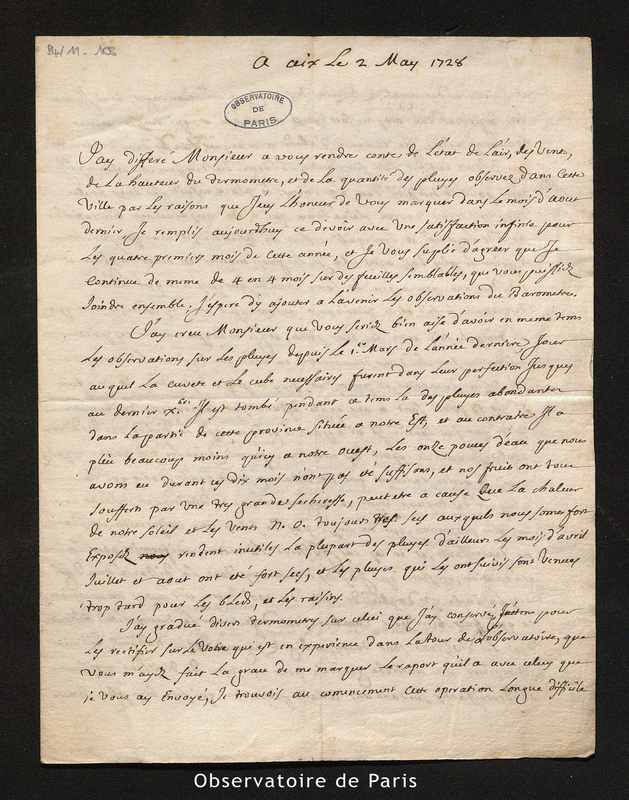 A aix Le 2 May 1728
OBSERVATOIRE
DE
PARIS
J'ay differé Monsieur a vous rendre conte de L'état de L'air, des Vents,
de La hauteur du termometre, et de La quantité des pluyes observez dans Cette
Ville par Les raisons que J'eus L'honeur de Vous marquer dans Le mois d'aout
dernier. Je remplis aujourdhuy ce devoir avec Une satisfaction infinie pour
Les quatre premiers mois de Cette année, et Je Vous suplie d'agréer que Je
Continue de meme de 4 en 4 mois sur des feuilles semblables, que vous puissiez
Joindre ensemble. J'espere d'y ajouter a L'avenir Les observations du Barometre.
J'ay creu Monsieur que Vous seriez bien aise d'avoir en meme tems
Les observations sur Les pluyes depuis Le 1.er Mars de L'année derniere Jour
auquel La cuvete et Le cube necessaires furent dans Leur perfection Jusques
au dernier x.bre Il est tombé pendant ce tems La des pluyes abondantes
dans La partie de cette province située a notre Est, et au contraire Il a
pleu beaucoup moins qu'icy a notre ouest, Les onze pouces d'eau que nous
avons eu durant ces dix mois n'ont pas eté suffisons, et nos fruits ont tous
souffert par Une tres grande secheresse, peut etre a cause que La chaleur
de notre soleil et Les Vents N. O. toujours secs auxquels nous somes fort
Exposez rendent inutiles La plupart des pluyes. d'ailleurs Les mois d'avril
Juillet et aout ont eté fort secs, et Les pluyes qui Les ont suivis sont Venues
trop tard pour Les bleds, et Les raisins.
J'ay gradué divers termometres sur celui que J'ay conservé pour
Les rectifier sur Le Votre qui est en experience dans La tour de L'observatoire, que
Vous m'ayez fait La grace de me marquer Le raport qu'il a avec celuy que
je vous ay Envoyé, Je trouvois au comencement Cette operation Longue difficile
Observatoire de Paris